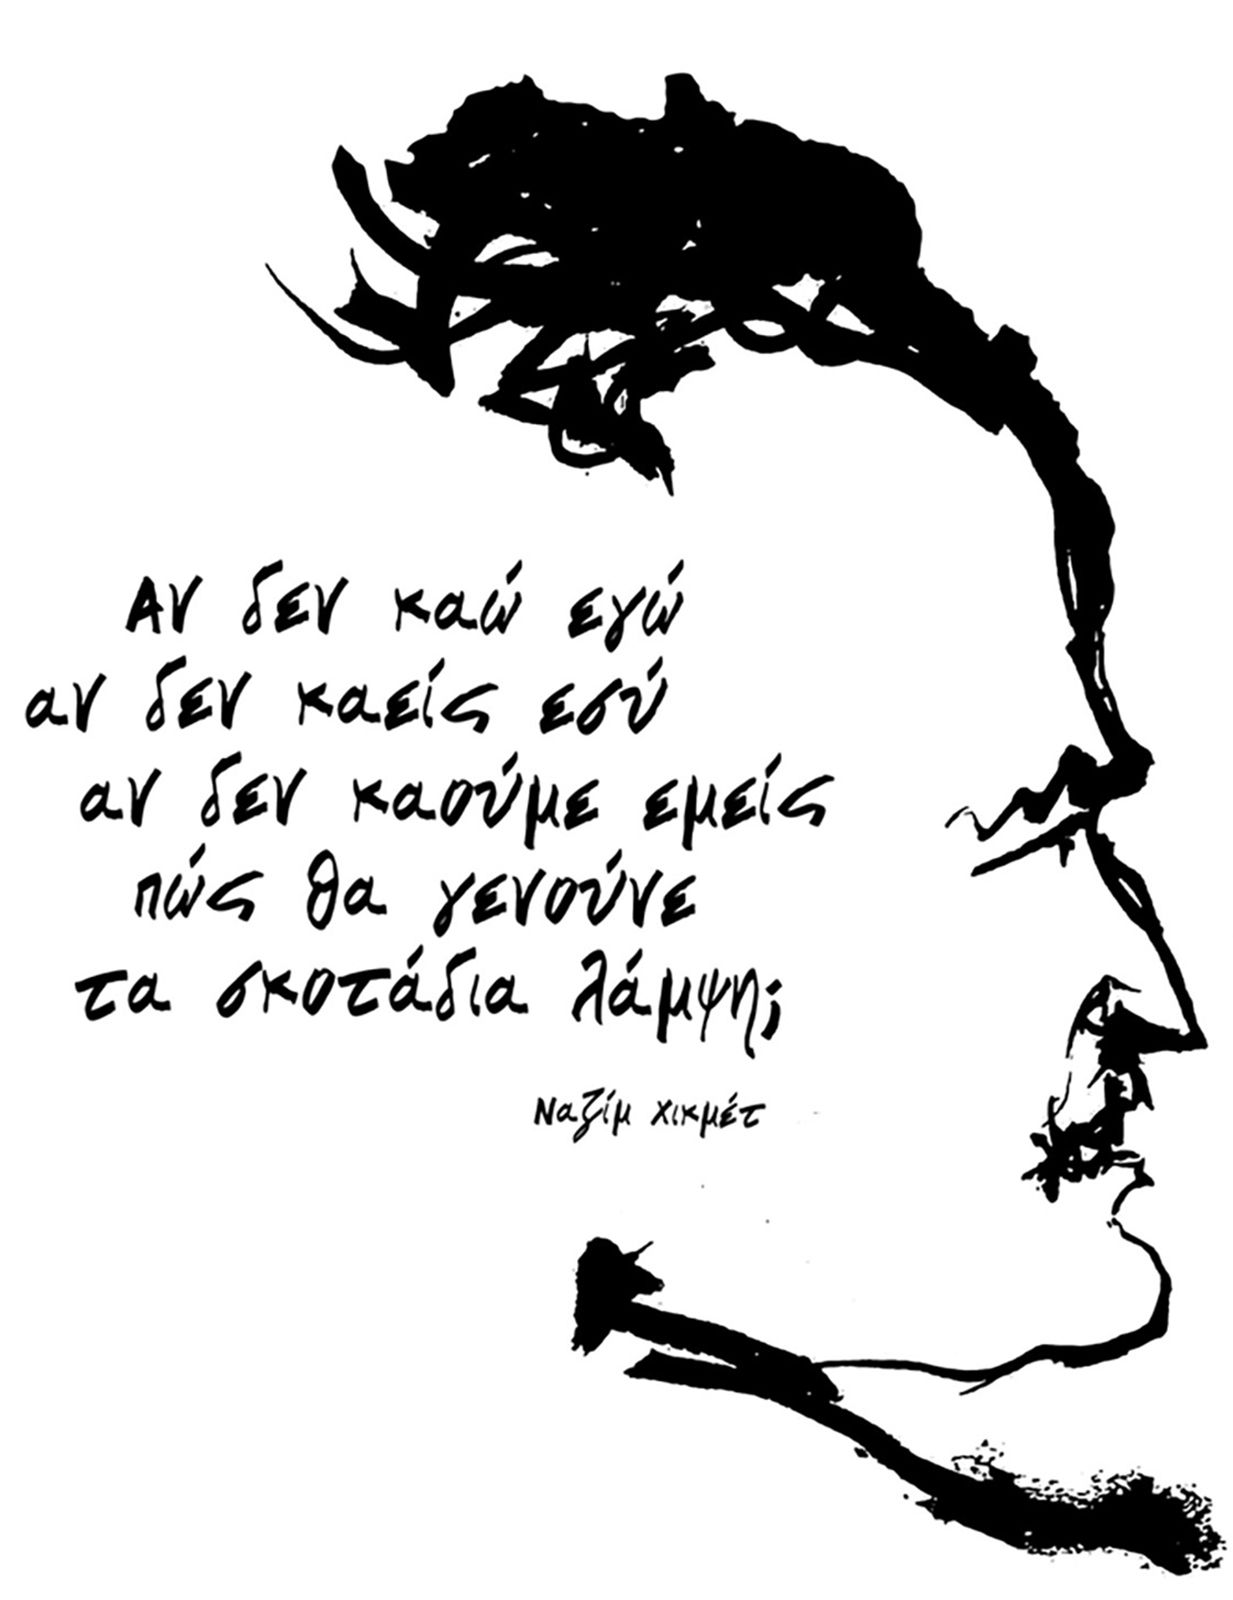 Αν δεν καώ εγώ
αν δεν καείς εσύ
αν δεν καούμε εμείς
πώς θα γενούνε
τα σκοτάδια λάμψη;
Ναζίμ Χικμέτ